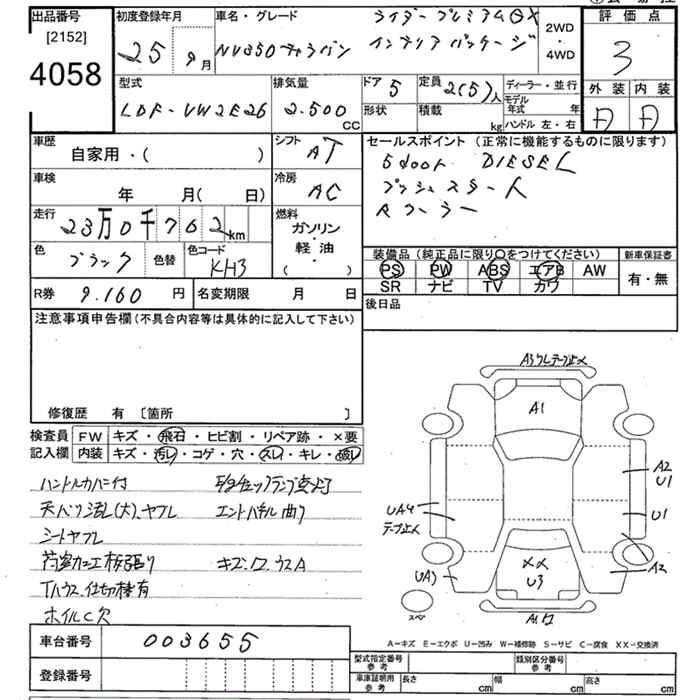 出品番号 初度登録年月 車名・グレード ライダープレミアムGX 2WD 評価点
[2152] 25年9月 NV350キャラバン インテリアパッケージ ・4WD 3
4058
型式 排気量 ドア 5 定員 2(5)人 ディーラー・並行 外装 内装
LDF-VW2E26 2.500 CC 形状 積載 kg モデル年式 年 A A
ハンドル 左・右
車歴 シフト AT セールスポイント (正常に機能するものに限ります)
自家用・( ) 5door DIESEL
車検 冷房 AC プッシュスタート
年 月( 日) Rクーラー
走行 燃料
23万0千762km ガソリン・軽油・( )
色 ブラック 色替 色コード KH3 装備品 (純正品に限り○をつけてください) 新車保証書
PS PW ABS エアB AW 有・無
SR ナビ TV カワ
R券 9.160 円 名変期限 月 日 後日品
注意事項申告欄 (不具合内容等は具体的に記入して下さい)
修復歴 有 [箇所 ]
検査員 FW キズ・飛石・ヒビ割・リペア跡・×要
記入欄 内装 キズ・汚レ・コゲ・穴・スレ・キレ・破レ
ハンドルカバー付 E/gチェックランプ点灯
天バリ汚レ(大)、ヤブレ エンドパネル曲り
シートヤブレ
荷室加工板張り キズ、ワ、ウスA
Tハウス、仕切棒有
ホイルC欠
A1
A2
U1
U1
UA4
テープ止メ
UA
A2
××
U3
スペア
A-キズ E-エクボ U-凹み W-補修跡 S-サビ C-腐食 XX-交換済
車台番号 003655
登録番号
型式指定番号 参考 類別区分番号 参考
車庫証明用 参考 長さ cm 幅 cm 高さ cm